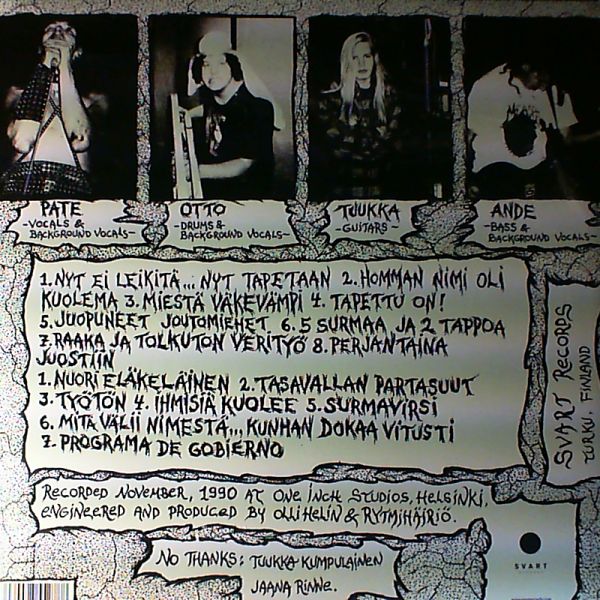 PATE
-VOCALS &
BACKGROUND VOCALS-
OTTO
-DRUMS &
BACKGROUND VOCALS-
TUUKKA
-GUITARS-
ANDE
-BASS &
BACKGROUND VOCALS-
1. NYT EI LEIKITÄ... NYT TAPETAAN 2. HOMMAN NIMI OLI
KUOLEMA 3. MIESTÄ VÄKEVÄMPI 4. TAPETTU ON!
5. JUOPUNEET JOUTOMIEHET 6. 5 SURMAA JA 2 TAPPOA
7. RAAKA JA TOLKUTON VERITYÖ 8. PERJANTAINA
JUOSTIIN
1. NUORI ELÄKELÄINEN 2. TASAVALLAN PARTASUUT
3. TYÖTÖN 4. IHMISIÄ KUOLEE 5. SURMAVIRSI
6. MITÄ VÄLII NIMESTÄ... KUNHAN DOKAA VITUSTI
7. PROGRAMA DE GOBIERNO
SVART RECORDS
TURKU, FINLAND
RECORDED NOVEMBER, 1990 AT ONE INCH STUDIOS, HELSINKI,
ENGINEERED AND PRODUCED BY OLLI HELIN & RYTMIHÄIRIÖ.
NO THANKS: TUUKKA KUMPULAINEN
JAANA RINNE.
SVART